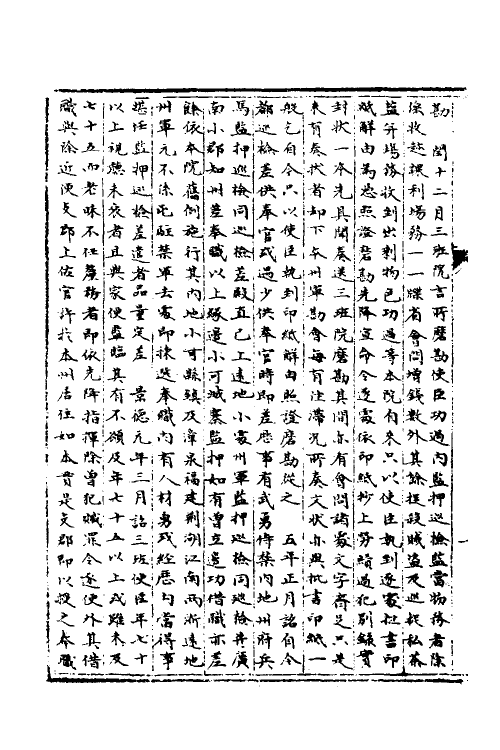 勘　閏十二月三班院言所磨勘使臣功過內監押巡檢監當物務者除
係收趁課利場務一一牒省會問增錢數外其餘捉殺賊盜及巡捉私茶
鹽并場務收到出剩物色功過等本院自來只以使臣執到逐處批書印
紙解由為憑照證磨勘先降宣命令逐處依印紙抄上勞績過犯別錄實
封狀一本先具聞奏送三班院磨勘其間亦有會問諸處文字齊足只是
未有奏狀者却下本州軍勘會每有注滯況所奏文狀亦與批書印紙一
般乞自今只以使臣執到印紙解由照證磨勘從之　五年正月詔自今
都巡檢差供奉官或過少供奉官時即差歷事有武勇侍禁內地州府兵
馬監押巡檢同巡檢差殿直已上遠地小處州軍監押巡檢同巡檢并廣
南小郡知州差奉職以上緣邊小可城寨監押如有曾立邊功借職亦差
餘依本院舊例施行其內地小可縣鎮及漳泉福建荊湖江南兩浙遠地
州軍元不係屯駐禁軍去處即揀選奉職內有人材身或經歷勾當得事
堪任監押巡檢差遣者品量定差　景德元年三月詔三班使臣年七十
以上視聽未衰者且與家便監臨其有不願及年七十五以上或雖未及
七十五而老昧不任釐務者即依先降指揮除曾犯贓罪令逐便外其借
職與除近便文郡上佐官許於本州居住如本貫是文郡即以授之奉職